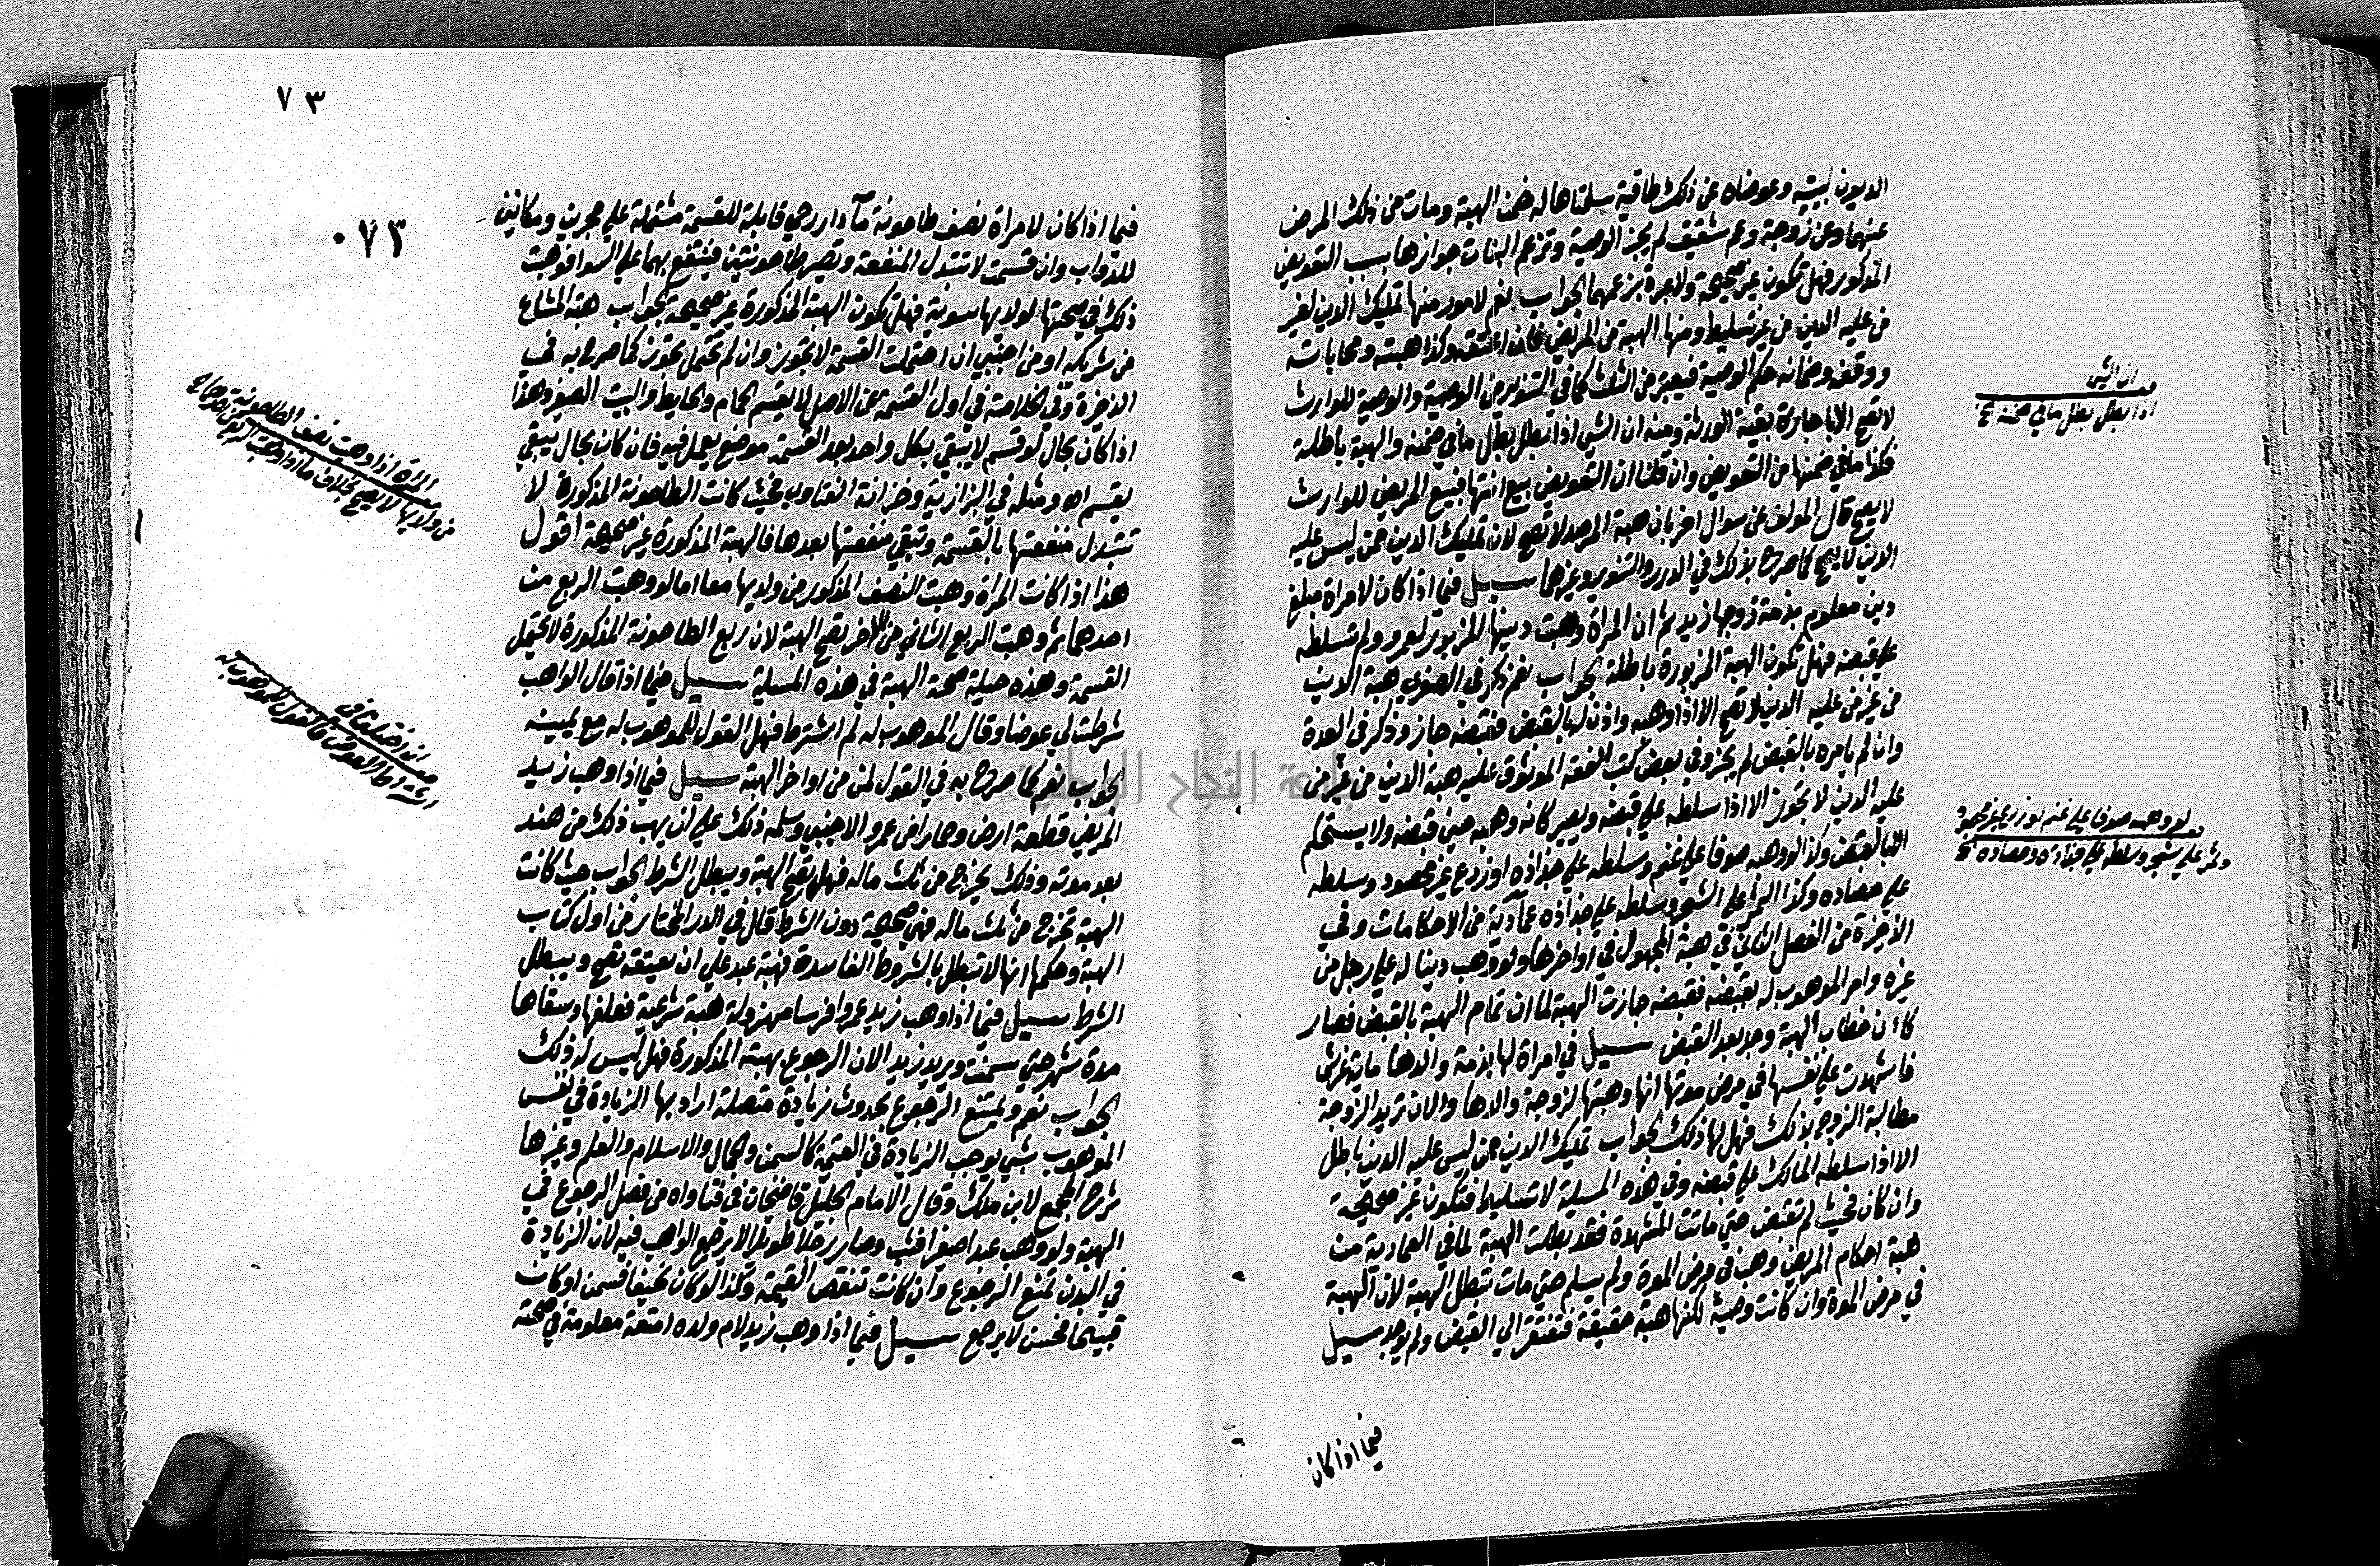 الديون لبنتيه وعوضاه عن ذلك طاقية سلمتاها له ضمن الهبة ومات من ذلك المرض
عنهما وعن زوجة وعم شقيق لم يجز الوصية وتزعم البنات جوازها بسبب التعويض
المذكور فهل تكون غير صحيحة ولا عبرة بزعمهما الجواب نعم لامور منها تمليك الدين لغير
من عليه الدين من غير تسليط ومنها الهبة من المريض فان اعتقه وكذا هبته ومحاباته
ووقفه وضمانه حكم الوصية فيعتبر من الثلث كما في التنوير من الوصية والوصية للوارث
لا تصح الا باجازة بقية الورثة ومنه ان الشي اذا بطل بطل ما في ضمنه والهبة باطلة
فكذا ما في ضمنها من التعويض وان قلنا ان التعويض بيع انتها فبيع المريض للوارث
لا يصح قال المولف عن سوال اخر بان هبة المرصد لا تصح لان تمليك الدين ممن ليس عليه
الدين لا يصح كما صرح بذلك في الدرر والتنوير وغيرهما سيل فيما اذا كان لامراة مبلغ
دين معلوم بذمة زوجها زيد ثم ان المراة وهبت دينها المزبور لعمرو ولم تسلطه
على قبضه فهل تكون الهبة المزبورة باطلة الجواب نعم ذكر في الصغرى هبة الدين
من غير من عليه الدين لا تصح الا اذا وهبه واذن له بالقبض فقبضه جاز وذكر في العدة
وان لم يامره بالقبض لم يجز وفي بعض كتب الفقه الموثوق عليه هبة الدين من غير من
عليه الدين لا تجوز الا اذا سلطه على قبضه ويصير كانه وهبه حين قبضه ولا يستحكم
الا بالقبض وكذا لو وهبه صوفا على غنم وسلطه على جذاذه او زرع غير محصود وسلطه
على حصاده وكذا الثمر على الشجر وسلطه على جذاذه عمادية من الاحكامات وفي
الذخيرة من الفصل الثاني في هبة المجهول في اواخرها ولو وهب دينا له على رجل من
غيره وامر الموهوب له بقبضه فقبضه جازت الهبة لما ان تمام الهبة بالقبض فصار
كأن خطاب الهبة وجد بعد القبض سيل في امراة لها بذمة والدها ماية غرش
فاشهدت على نفسها في مرض موتها انها وهبتها لزوجة والاها والان تريد الزوجة
مطالبة الزوج بذلك فهل لها ذلك الجواب تمليك الدين ممن ليس عليه الدين باطل
الا اذا سلطه المالك على قبضه وفي هذه المسيلة لا تسليط فتكون غير صحيحة
وان كان فحيث لم تقبض حتي ماتت المشهدة فقد بطلت الهبة لما في العمادية من
هبة احكام المريض وهب في مرض الموت ولم يسلم حتي مات تبطل الهبة لان الهبة
في مرض الموت وان كانت وصية لكنها هبة حقيقة فتفتقر الى القبض ولم يوجد سيل
فيما اذا كان
ان الشي
اذا بطل بطل ما في ضمنه
لو وهبه صوفا على غنم او زرع غير محصود
وثمر على شجر وسلطه على جذاذه وحصاده صح
٧٣
٠٧٣
فيما اذا كان لامراة نصف طاحونة مآ دار رحي قابلة للقسمة مشتملة على حجرين ومكانين
للدواب وان قسمت لا تتبدل المنفعة وتصير طاحونتين فينتفع بهما على السوا فوهبت
ذلك في صحتها لولديها سوية فهل تكون الهبة المذكورة غير صحيحة الجواب هبة المشاع
من شريكه او من اجنبي ان احتملت القسمة لا تجوز وان لم تحتمل تجوز كما صرح به في
الذخيرة وفي الخلاصة في اول القسمة عن الاصل لا يقسم الحمام والحايط والبيت الصغير وهذا
اذا كان بحال لو قسم لا يبقي بكل واحد بعد القسمة موضع يعمل فيه فان كان بحال يبقي
يقسم اه ومثله في البزازية وخزانة الفتاوى فحيث كانت الطاحونة المذكورة لا
تتبدل منفعتها بالقسمة وتبقي منفعتها بعدها فالهبة المذكورة غير صحيحة اقول
هذا اذا كانت المراة وهبت النصف المذكور من ولديها معا اما لو وهبت الربع من
احدهما ثم وهبت الربع الثاني من الاخر تصح الهبة لان ربع الطاحونة المذكورة لا يحتمل
القسمة وهذه حيلة صحة الهبة في هذه المسيلة سيل فيما اذا قال الواهب
شرطت لي عوضا وقال الموهوب له لم اشترط فهل القول للموهوب له مع يمينه
الجواب نعم كما صرح به في القول لمن من اواخر الهبة سيل فيما اذا وهب زيد
المريض قطعة ارض وحمارا من عمرو الاجنبي وسلمه ذلك على ان يهب ذلك من هند
بعد موته وذلك يخرج من ثلث ماله فهل تصح الهبة ويبطل الشرط الجواب حيث كانت
الهبة تخرج من ثلث ماله فهي صحيحة دون الشرط قال في الدر المختار من اول كتاب
الهبة وحكمها انها لا تبطل بالشروط الفاسدة فهبة عبد على ان يعتقه تصح ويبطل
الشرط سيل فيما اذا وهب زيد عمروا فرسا مهزولة هبة شرعية فعلفها وسقاها
مدة شهر حتي سمنت ويريد زيد الان الرجوع بهبته المذكورة فهل ليس له ذلك
الجواب نعم ويمتنع الرجوع بحدوث زيادة متصلة اراد بها الزيادة في نفس
الموهوب بشي يوجب الزيادة في القيمة كالسمن والجمال والاسلام والعلم وغيرها
شرح المجمع لابن ملك وقال الامام الجليل قاضيخان في فتاواه من فصل الرجوع في
الهبة ولو وهب عبدا صغيرا فشب وصار رجلا طويلا لا يرجع الواهب فيه لان الزيادة
في البدن تمنع الرجوع وان كانت تنقص القيمة وكذا لو كان نحيفا فسمن او كان
قبيحا فحسن لا يرجع سيل فيما اذا وهب زيد لام ولده امتعة معلومة في صحته
المراة اذا وهبت نصف الطاحونة
من ولديها لا يصح بخلاف ما اذا وهبت
اذا اختلفا في
اشتراط العوض فالقول للموهوب له